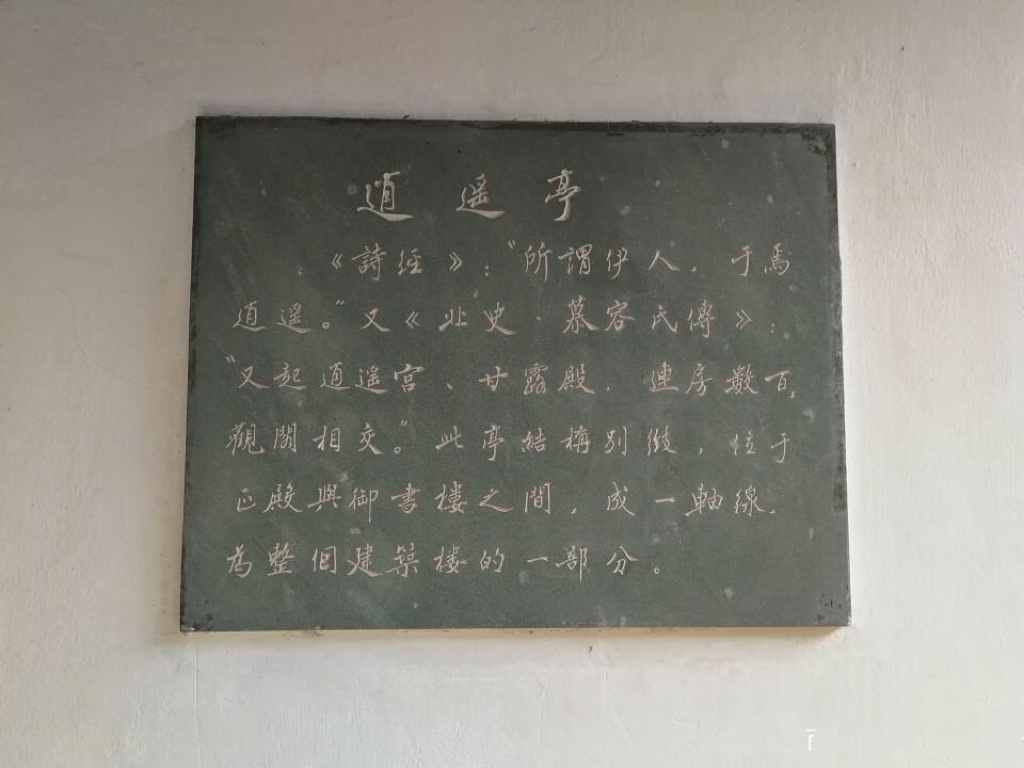 逍遥亭
《詩經》："所謂伊人，于焉
逍遥。"又《北史·慕容氏傳》：
"又起逍遥宫、甘露殿，連房數百，
觀閣相交。"此亭結構别緻，位于
正殿與御書楼之間，成一軸線，
為整個建築楼的一部分。